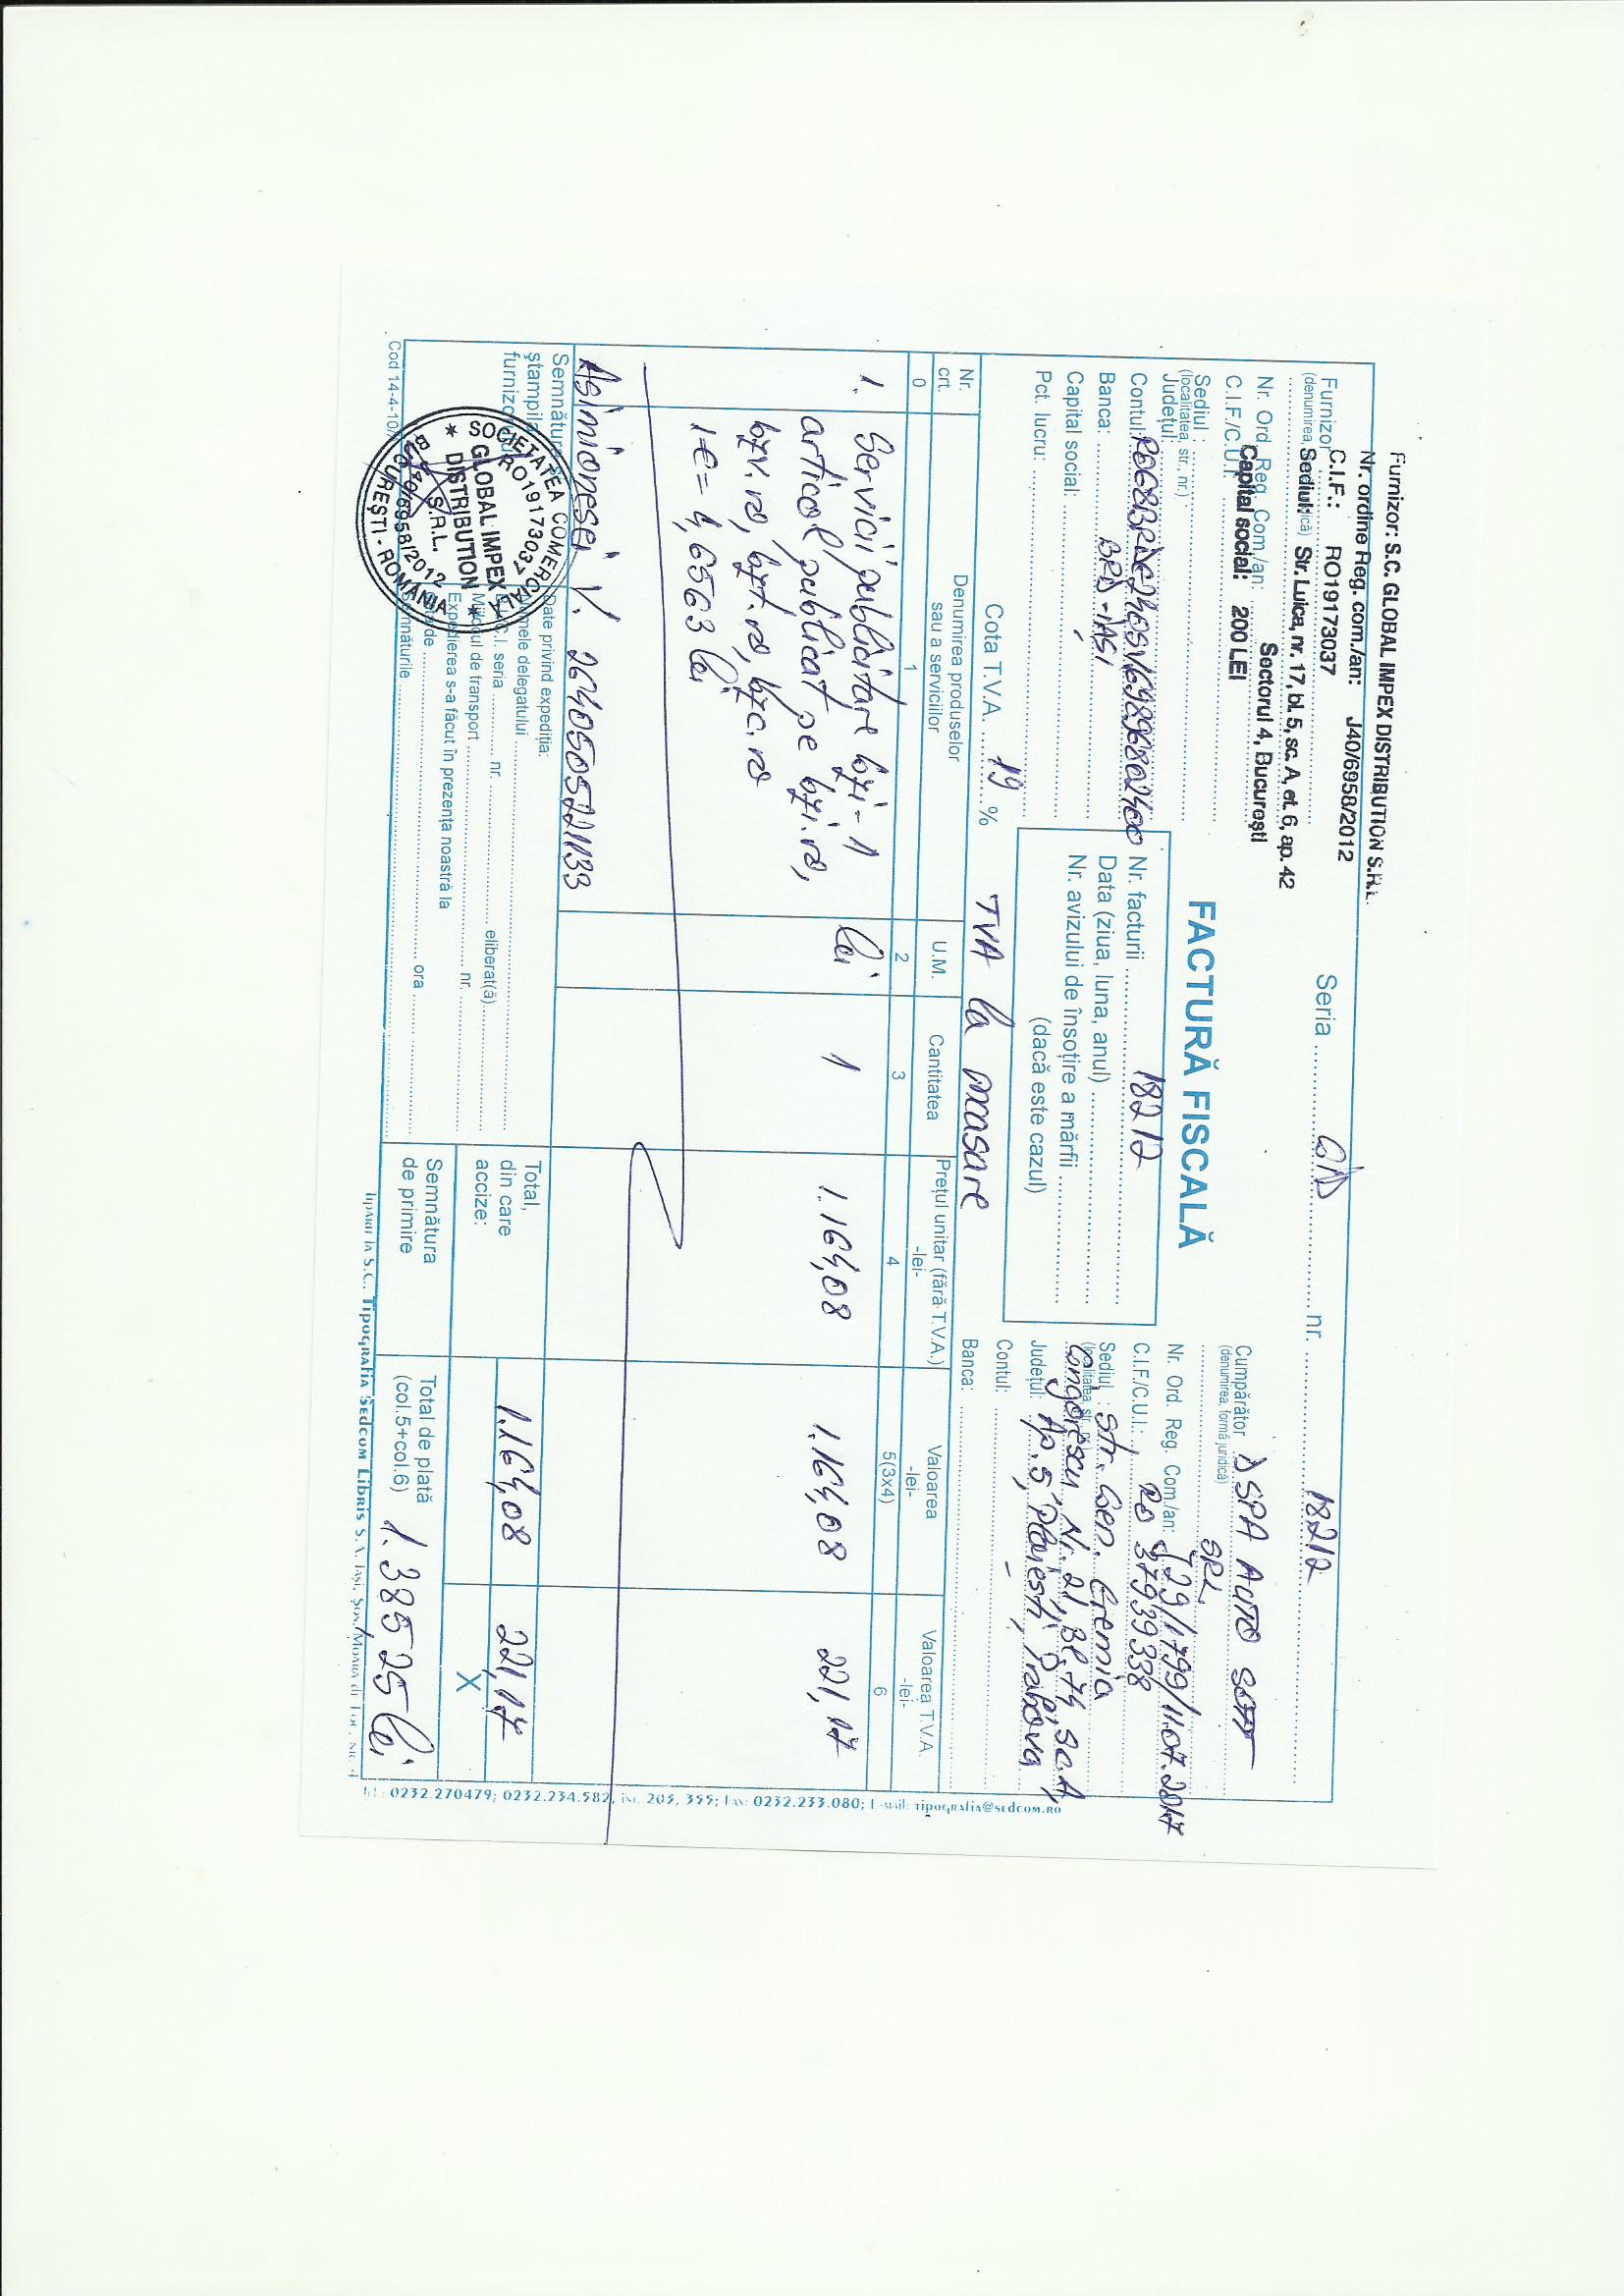 Furnizor: S.C. GLOBAL IMPEX DISTRIBUTION S.R.L.
Nr. ordine Reg. com./an: J40/6958/2012
C.I.F.: RO19173037
Sediul: Str. Luica, nr. 17, bl. 5, sc. A, et. 6, ap. 42
Sectorul 4, Bucureşti
Capital social: 200 LEI
Furnizor
(denumirea,
Nr. Ord. Reg. Com./an:
C.I.F./C.U.I:
Sediul :
(localitatea, str., nr.)
Judeţul:
Contul: RO68BRDE240SV69896802400
Banca: BRD-IAŞI
Capital social:
Pct. lucru:
Seria GID nr. 18212
FACTURĂ FISCALĂ
Nr. facturii 18212
Data (ziua, luna, anul)
Nr. avizului de însoţire a mărfii
(dacă este cazul)
Cumpărător DSPA AUTO SOFT
(denumirea, formă juridică)
SRL
Nr. Ord. Reg. Com./an: J29/1799/11.07.2017
C.I.F./C.U.I.: RO 37939338
Sediul : Str. Gen. Eremia
(localitatea, str., nr.)
Grigorescu, Nr. 21, Bl. 74, Sc. A,
Judeţul: Ap. 5, Ploieşti, Prahova
Contul: -
Banca:
Cota T.V.A. 19 %
TVA la incasare
Nr. crt.
Denumirea produselor
sau a serviciilor
U.M.
Cantitatea
Preţul unitar (fără T.V.A.)
-lei-
Valoarea
-lei-
Valoarea T.V.A.
-lei-
0 1 2 3 4 5(3x4) 6
1. Servicii publicitare bzi - 1 lei 1 1.164,08 1.164,08 221,17
articol publicat pe bzi.ro,
bzv.ro, bzt.ro, bzc.ro
1€ = 4,6563 lei
Asimionesei V. 2640505221133
Semnătura
ştampila
furnizorului
SOCIETATEA COMERCIALĂ
RO19173037
GLOBAL IMPEX
DISTRIBUTION
S.R.L.
J40/6958/2012
BUCUREŞTI - ROMÂNIA
Date privind expediţia:
Numele delegatului
C.I. seria nr. eliberat(ă)
Mijlocul de transport nr.
Expedierea s-a făcut în prezenţa noastră la
data de ora
Semnăturile
Total,
din care
accize:
1.164,08 221,17
X
Semnătura
de primire
Total de plată
(col.5+col.6) 1.385,25 lei
Cod 14-4-10/
Tipărit la S.C. Tipografia Sedcom Libris S.A. Iaşi, Şos. Moara de Foc, nr. 4
Tel.: 0232.270479; 0232.234.582, int. 205, 355; Fax: 0232.233.080; E-mail: tipografia@sedcom.ro